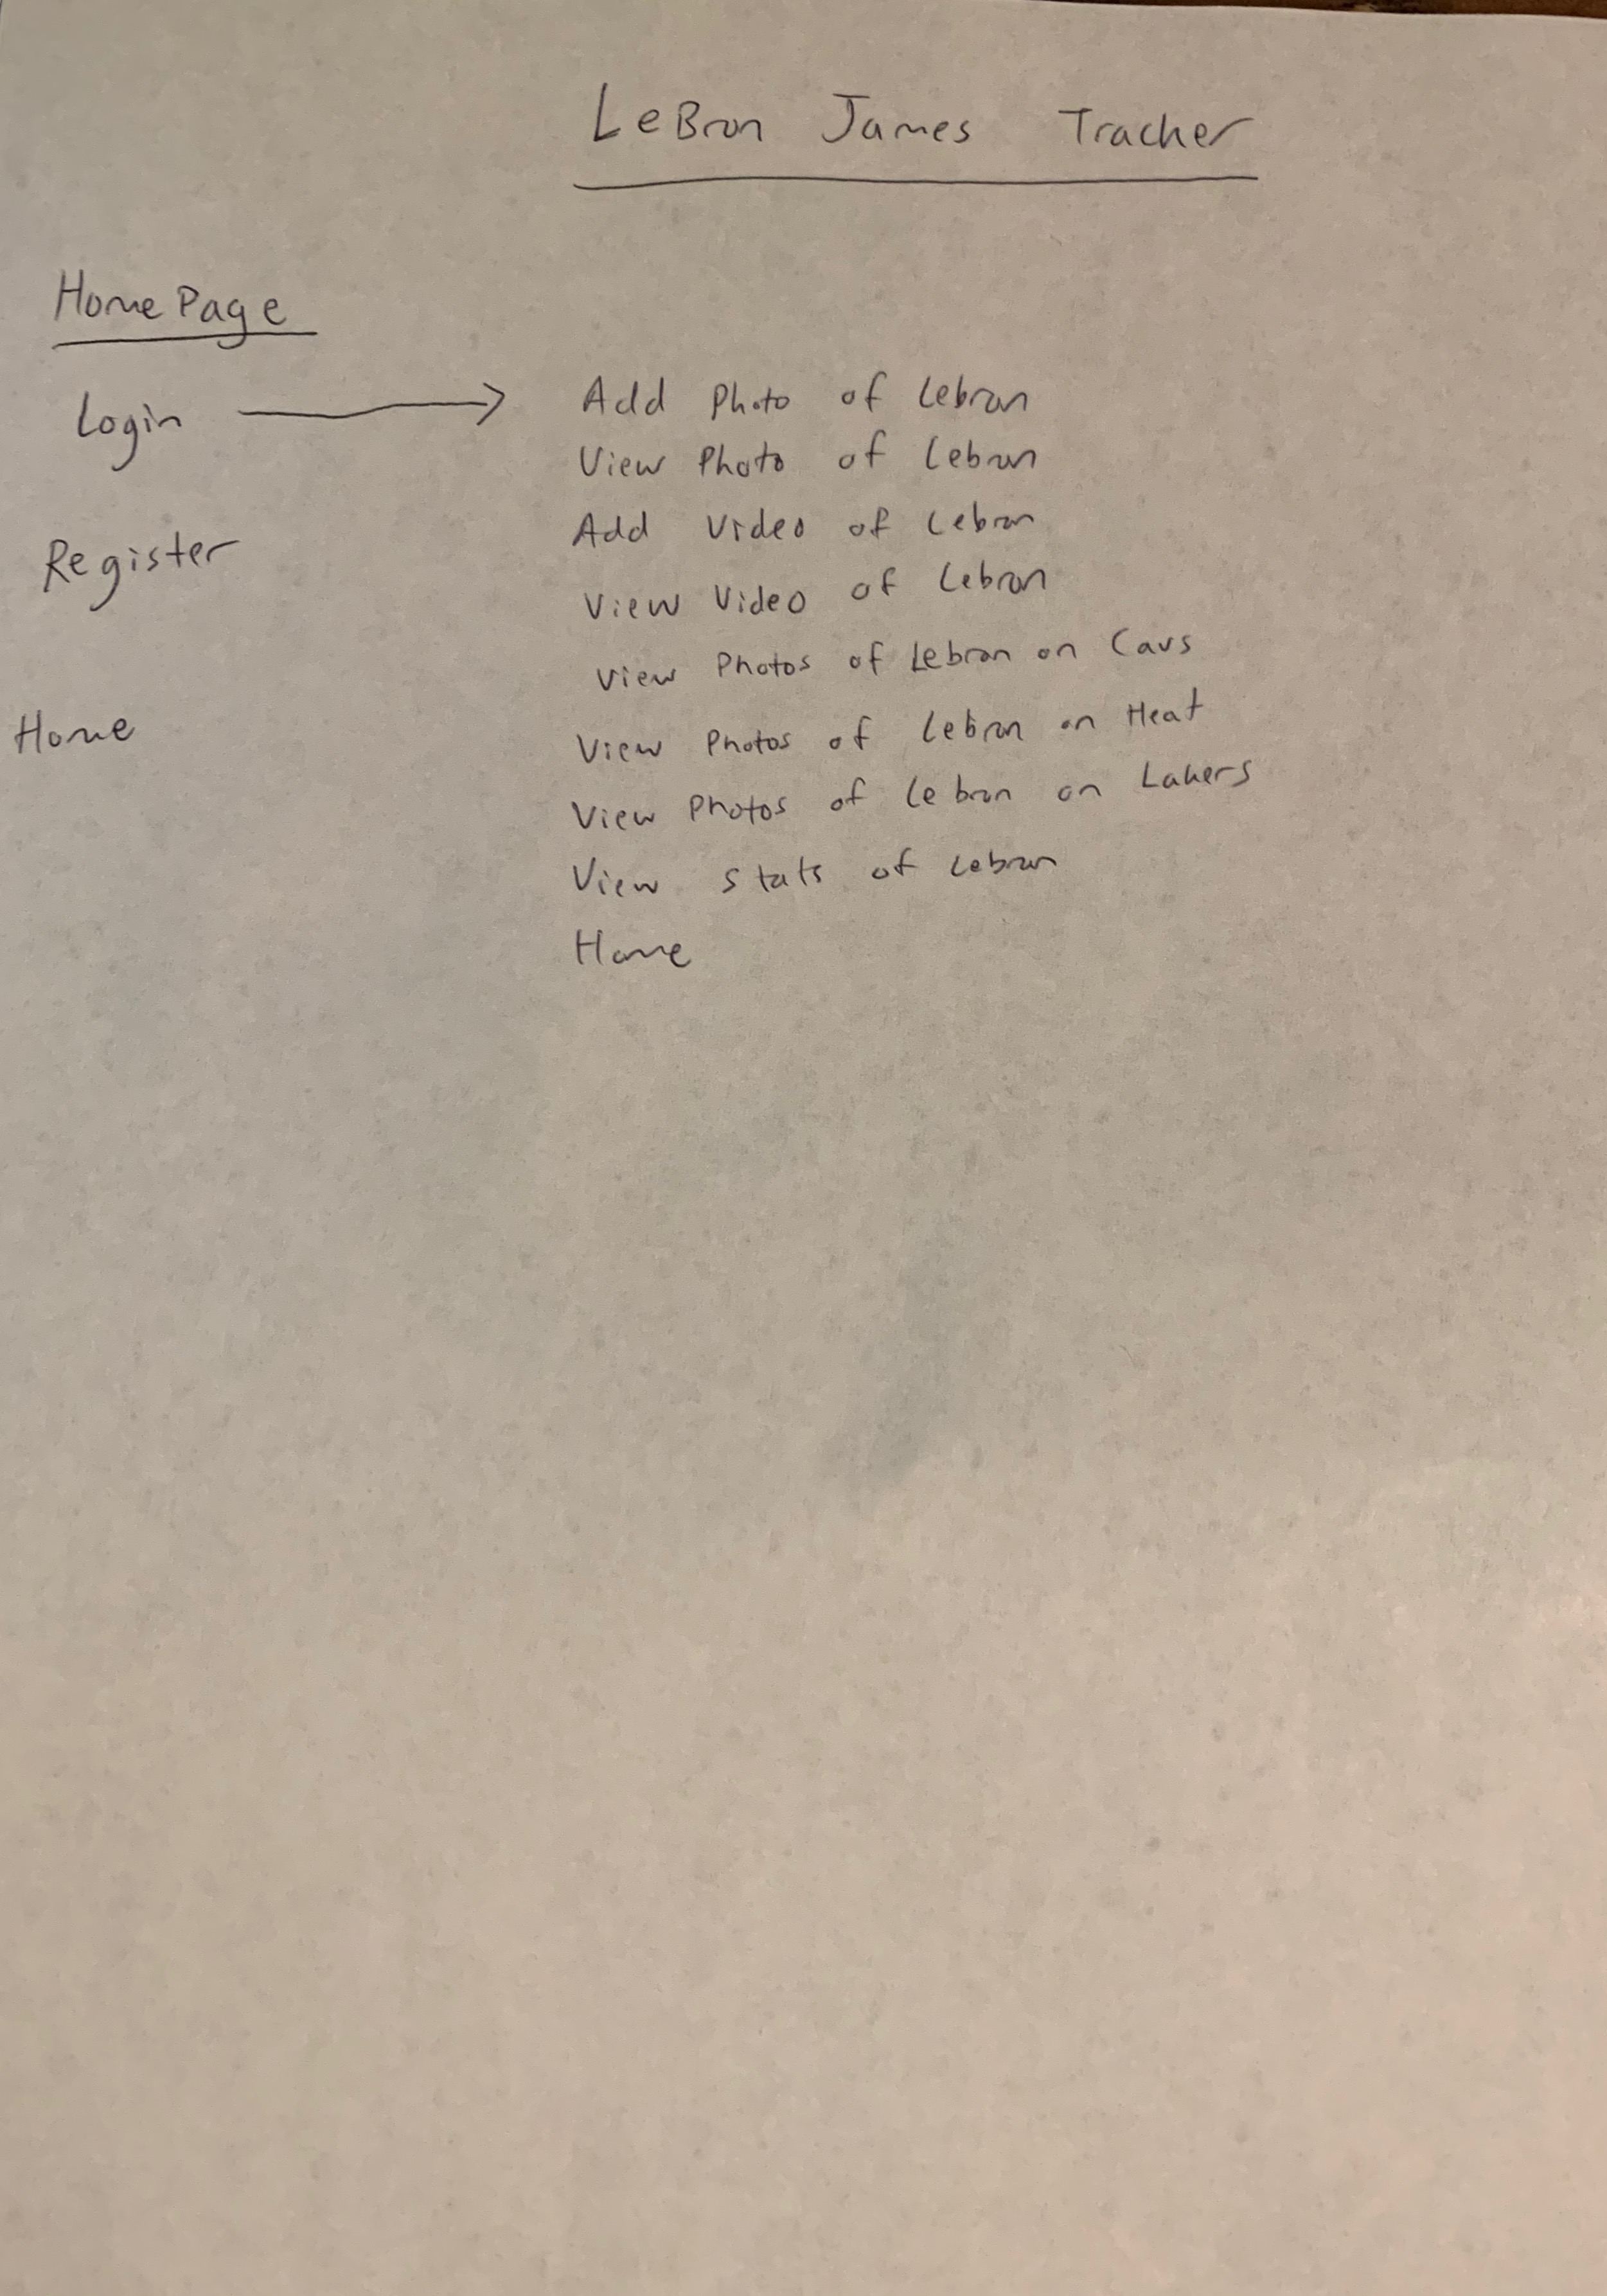 LeBron James Tracker
HomePage
Login
Register
Home
Add Photo of Lebron
View Photo of Lebron
Add Video of Lebron
View Video of Lebron
View Photos of Lebron on Cavs
View Photos of Lebron on Heat
View Photos of Lebron on Lakers
View stats of Lebron
Home